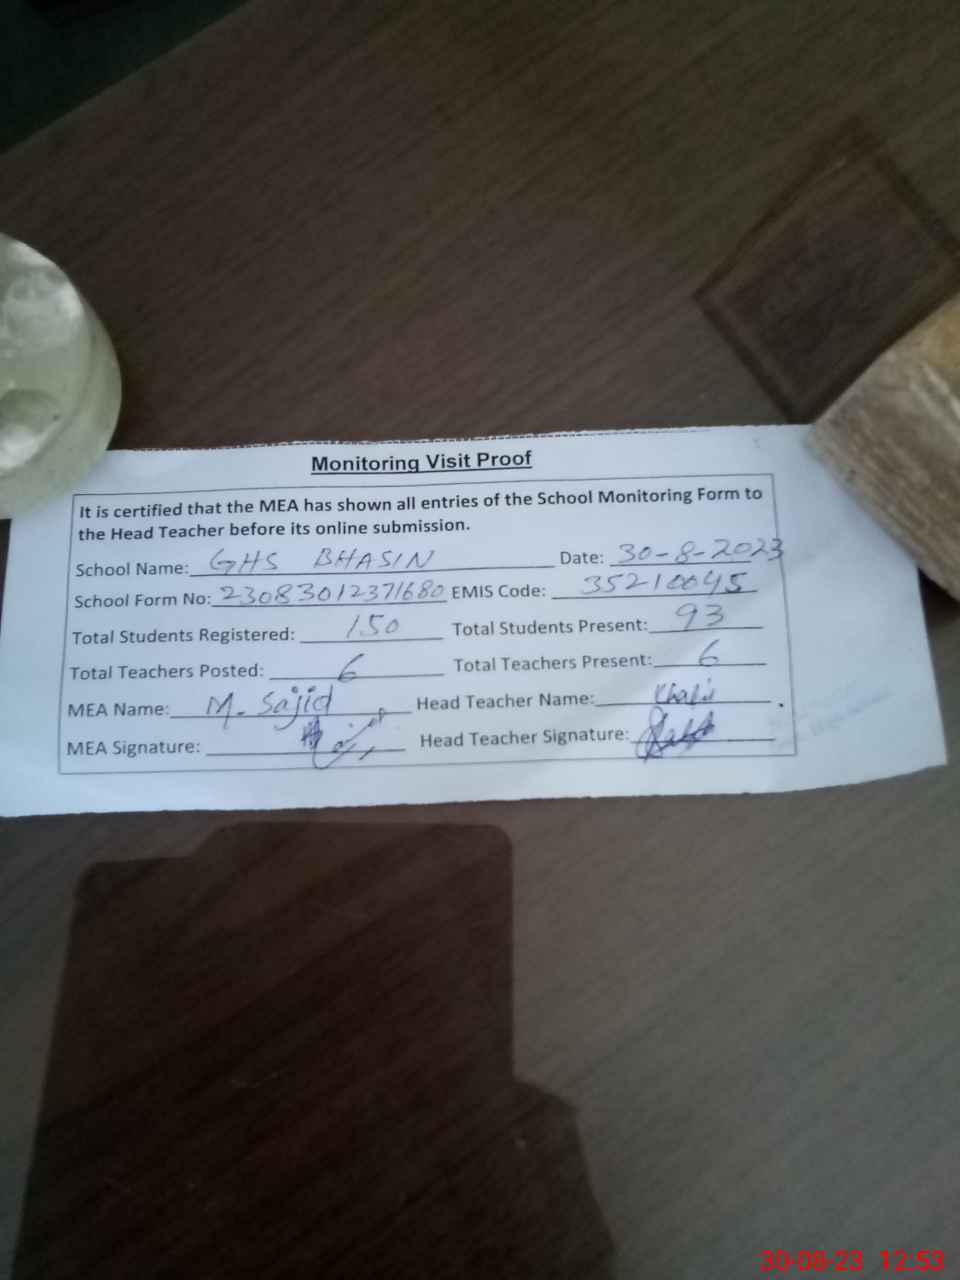 Monitoring Visit Proof
It is certified that the MEA has shown all entries of the School Monitoring Form to
the Head Teacher before its online submission.
School Name: GHS BHASIN Date: 30-8-2023
School Form No: 23083012371680 EMIS Code: 35210045
Total Students Registered: 150 Total Students Present: 93
Total Teachers Posted: 6 Total Teachers Present: 6
MEA Name: M. Sajid Head Teacher Name:
MEA Signature: Head Teacher Signature:
30-08-23 12:53